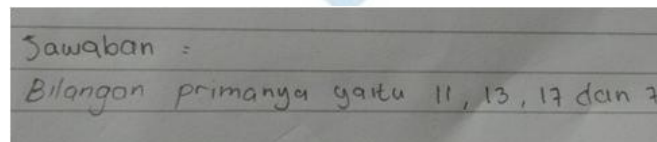 Jawaban :
Bilangan primanya yaitu 11, 13, 17 dan 7